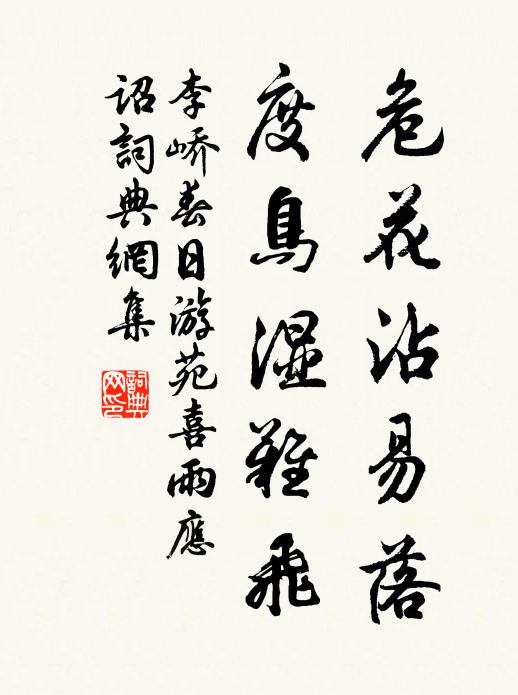 危花沾易落
度鳥濕難飛
李嶠春日游苑喜雨應
詔詞典網集
詞典網印